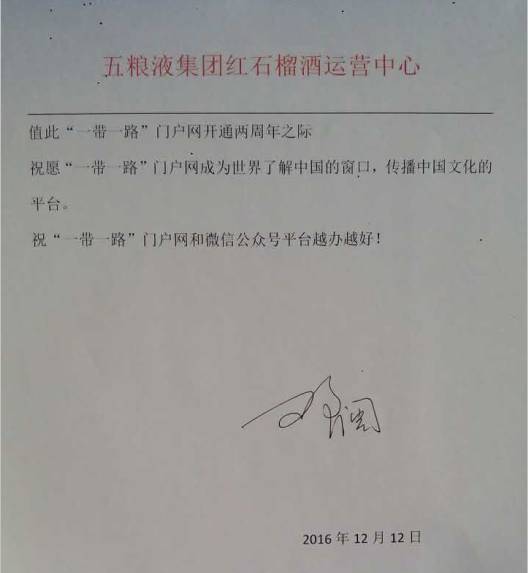 五粮液集团红石榴酒运营中心
值此“一带一路”门户网开通两周年之际
祝愿“一带一路”门户网成为世界了解中国的窗口，传播中国文化的
平台。
祝“一带一路”门户网和微信公众号平台越办越好！
2016 年 12 月 12 日